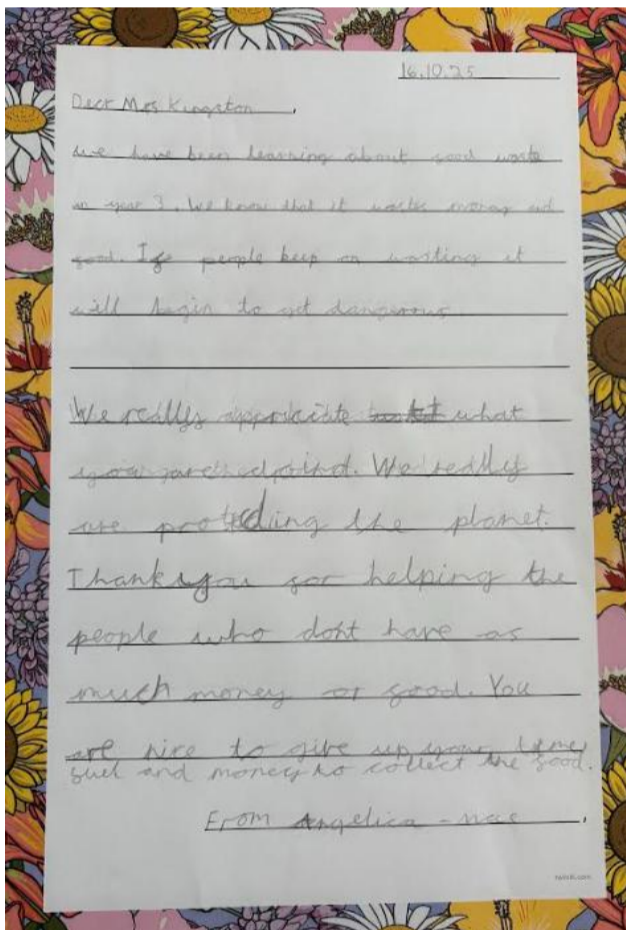 16.10.25
Dear Mrs Kingston,
we have been learning about food waste
in year 3. We know that it wastes money and
food. If people keep on wasting it
will begin to get dangerous.
We really apprciate what
you are doing. We really
are protecding the planet.
Thankyou for helping the
people who dont have as
much money or food. You
are nice to give up your time,
fuel and money to collect the food.
From Angelica-mae.